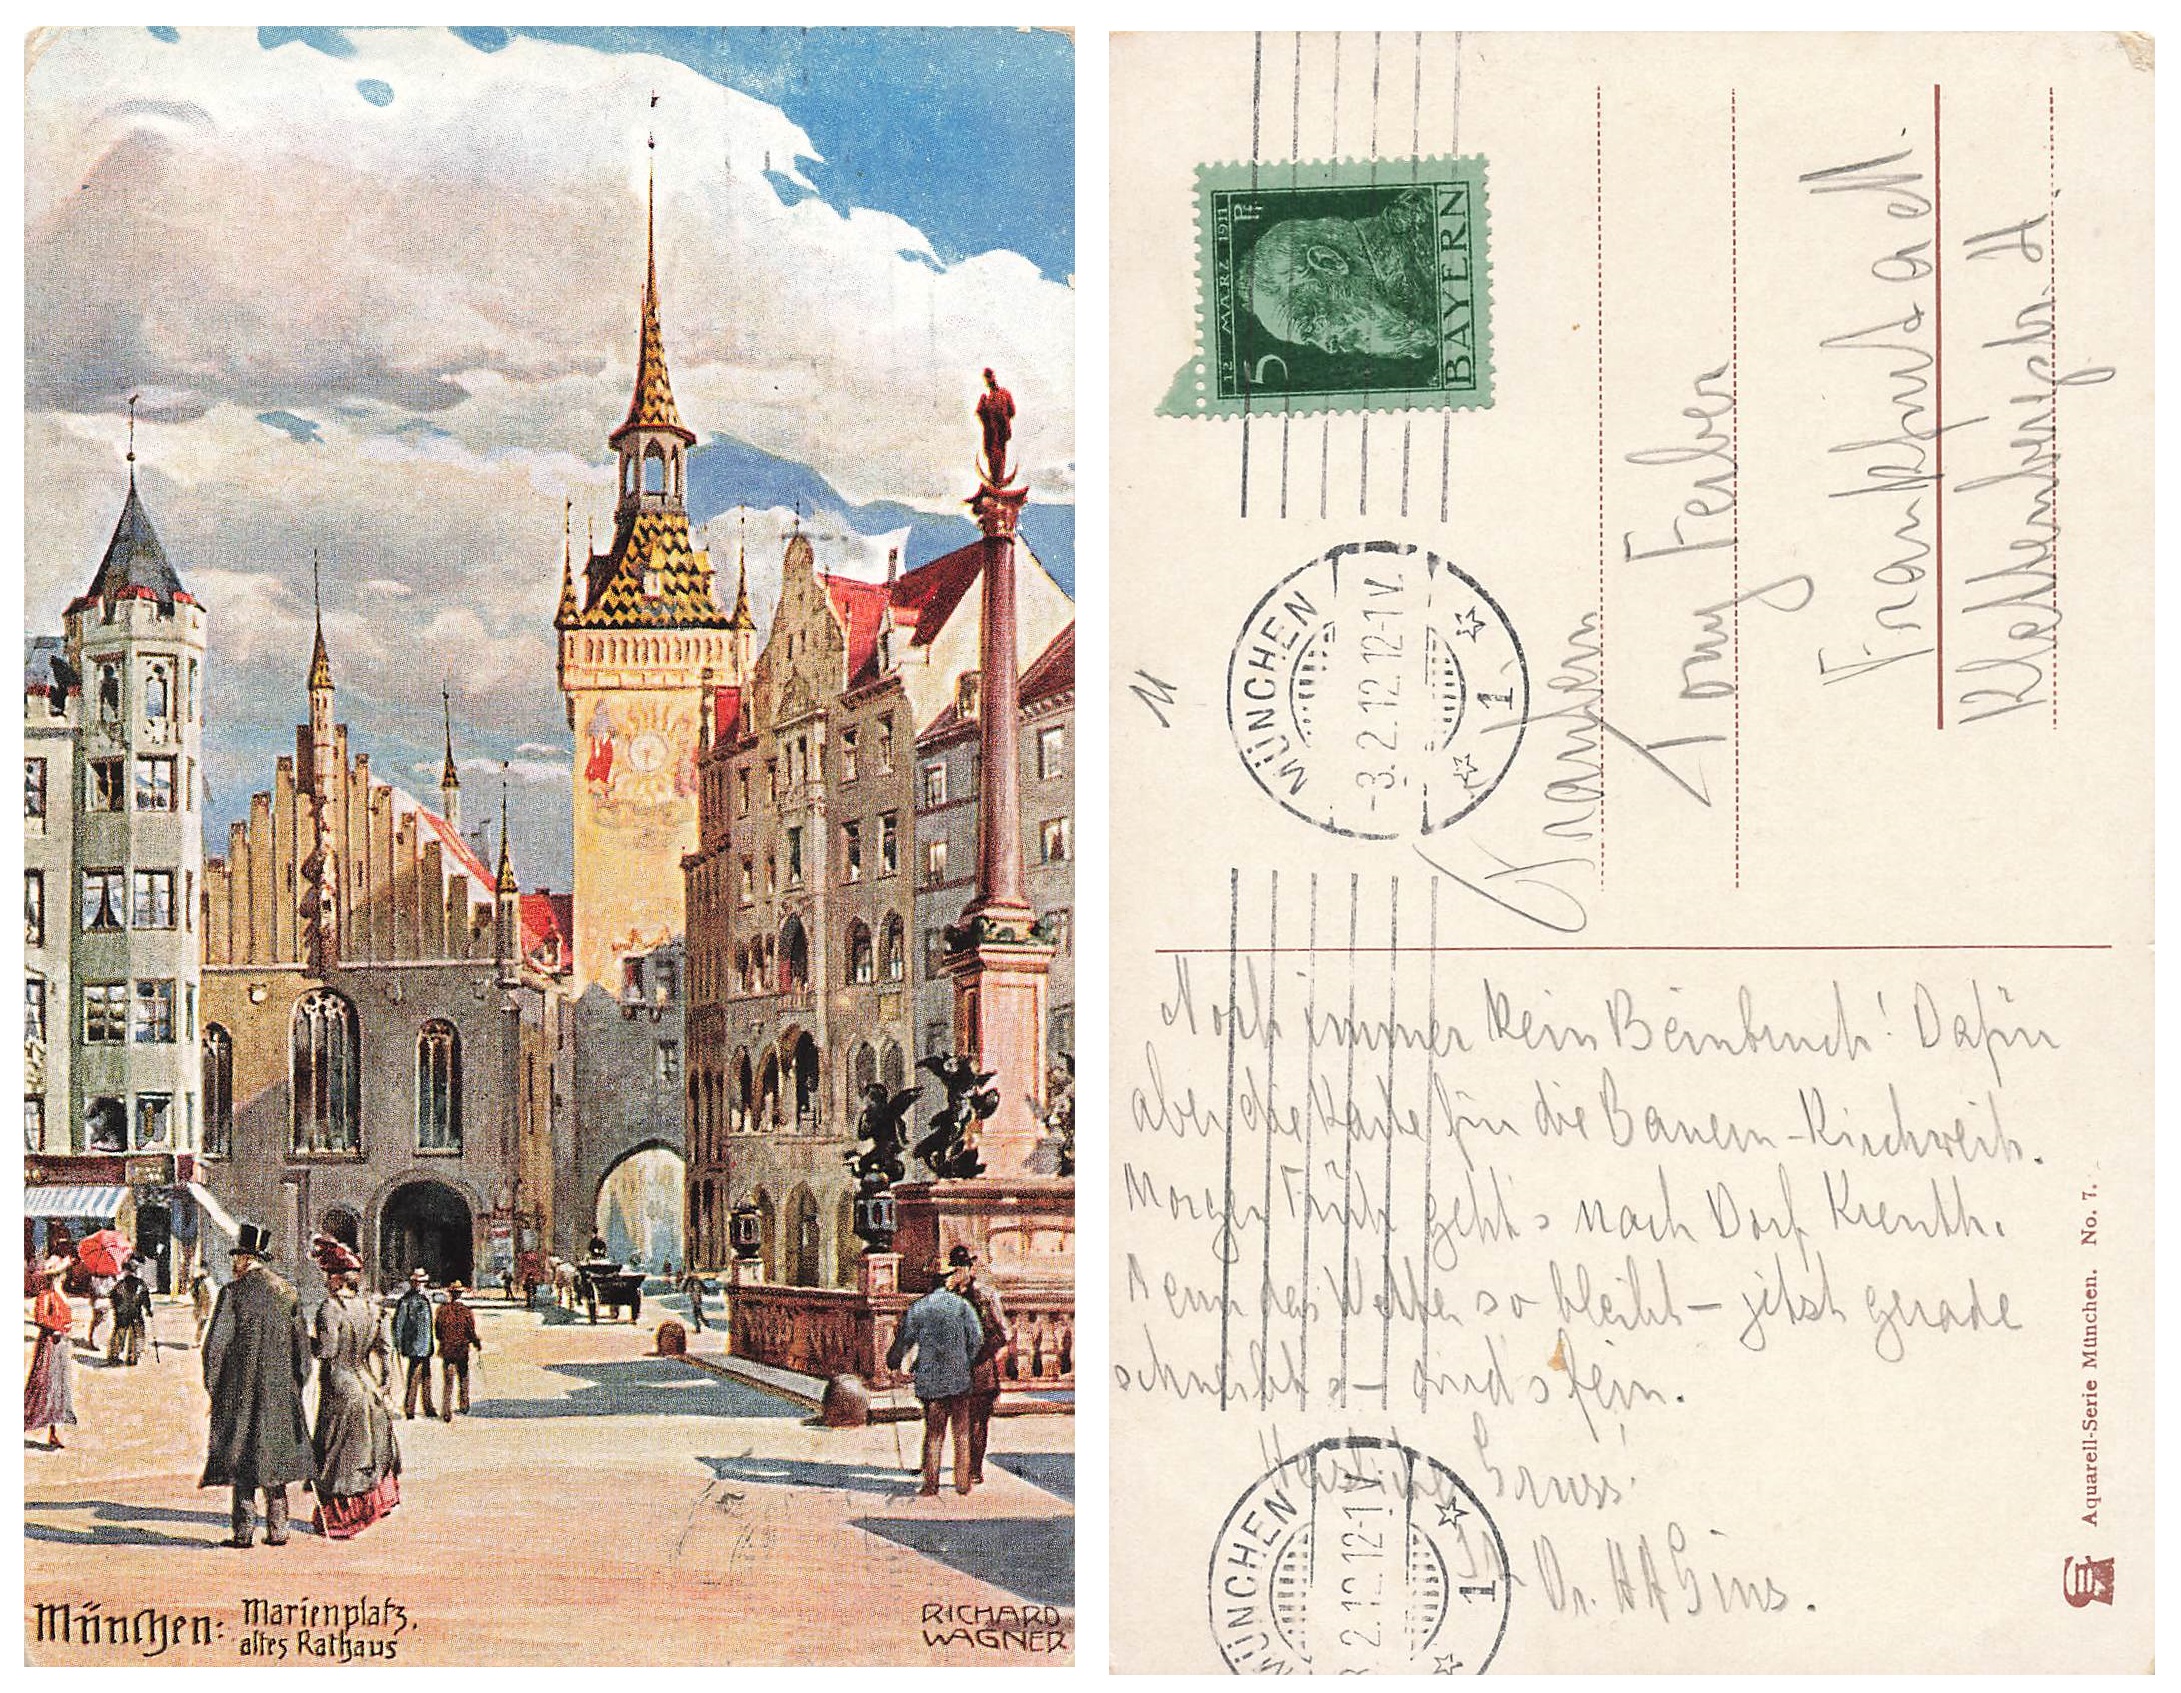 München:
Marienplatz,
altes Rathaus
RICHARD
WAGNER
12 MÄRZ 1911
5 Pf
BAYERN
MÜNCHEN
-3.2.12.12-1V.
1.
Tony Ferber
Frankfurt a M.
Klettenbergstr. 11
Noch immer kein Beinbruch! Dafür
aber die Karte für die Bauern-Kirchweih.
Morgen Früh geht's nach Dorf Kreuth.
Wenn das Wetter so bleibt - jetzt gerade
schneibt's - wird's fein.
Herzliche Gruss!
Dr.
MÜNCHEN
2.12.12-1V.
1
Aquarell-Serie München. No. 7.